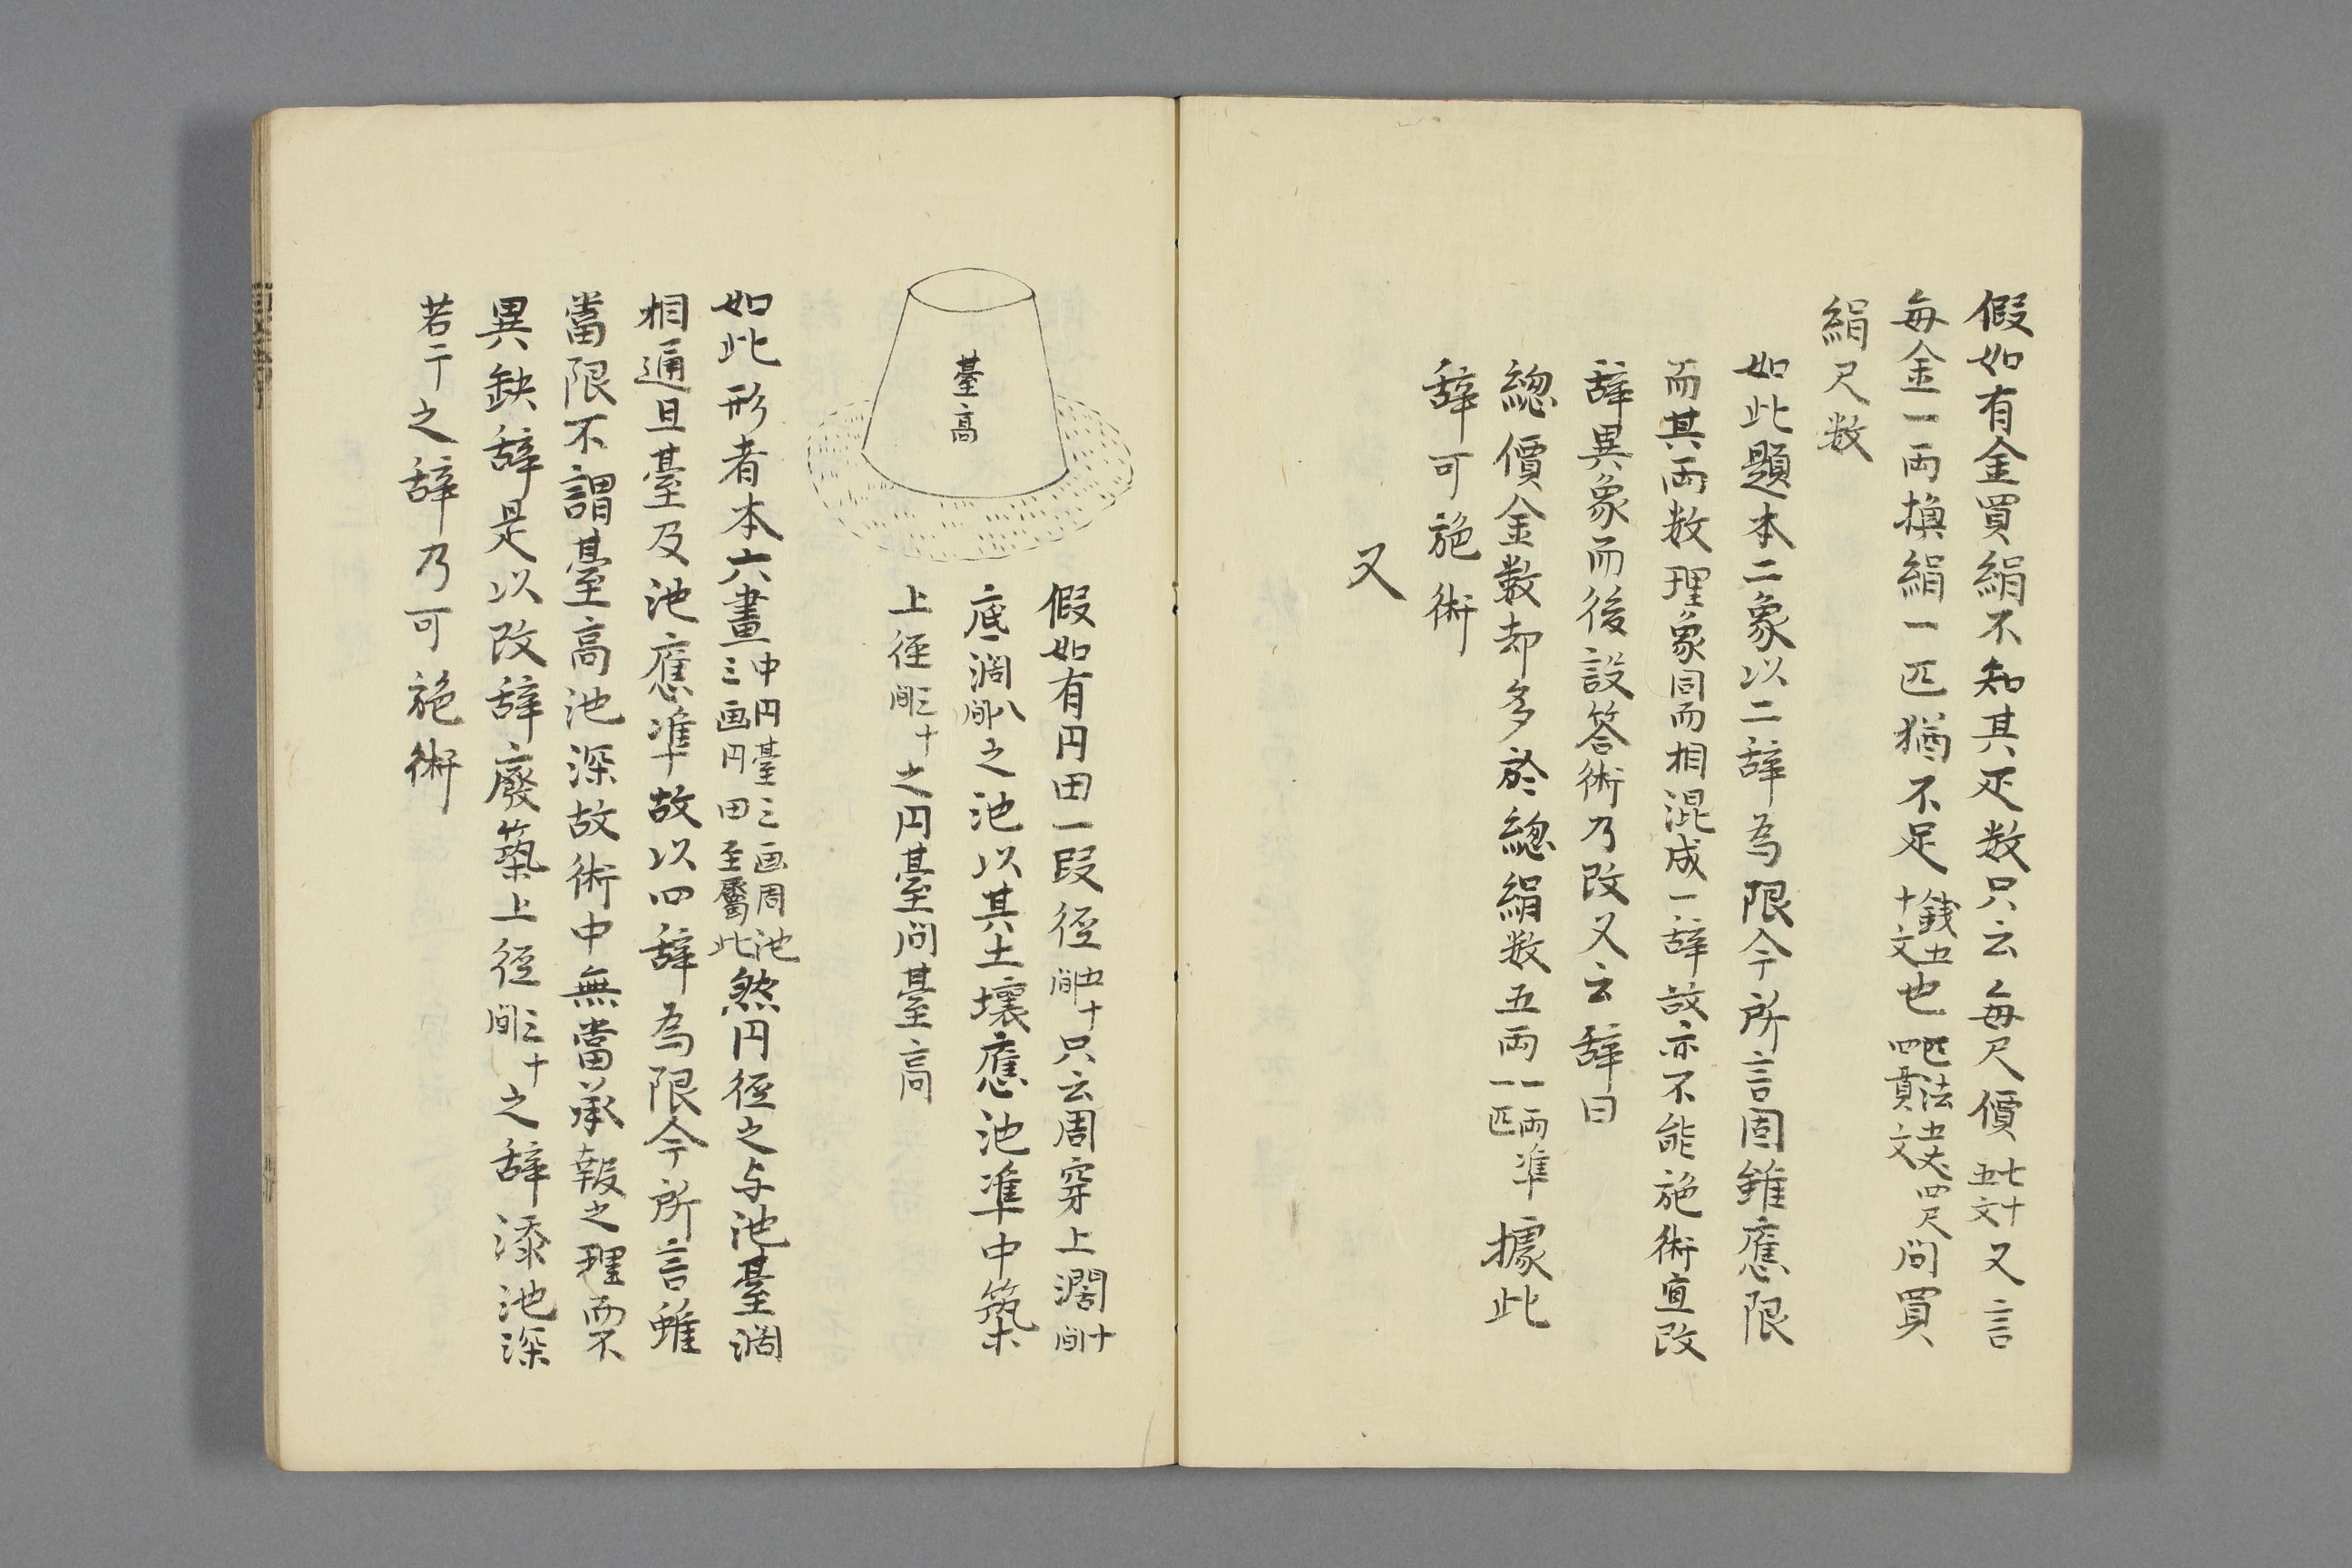 假如有金買絹不知其疋数只云每尺價七十五文又言
每金一両換絹一匹猶不足銭五十文也匹法五丈四尺両四貫文問買
絹尺数
如此題本二象以二辞為限今所言固雖應限
而其両数理象同而相混成一辞故亦不能施術宜改
辞異象而後設答術乃改又云辞曰
總價金數却多於總絹数五両一両準一匹據此
辞可施術
又
臺高
假如有円田一段径五十間只云周穿上濶十間
底濶八間之池以其土壌應池準中築
上径三十間之円臺問臺高
如此形者本六畫中円臺三画周池三画円田至屬此然円径之与池臺濶
相通且臺及池應準故以四辞為限今所言雖
當限不謂臺高池深故術中無當承報之理而不
異缺辞是以改辞廢築上径三十間之辞添池深
若干之辞乃可施術